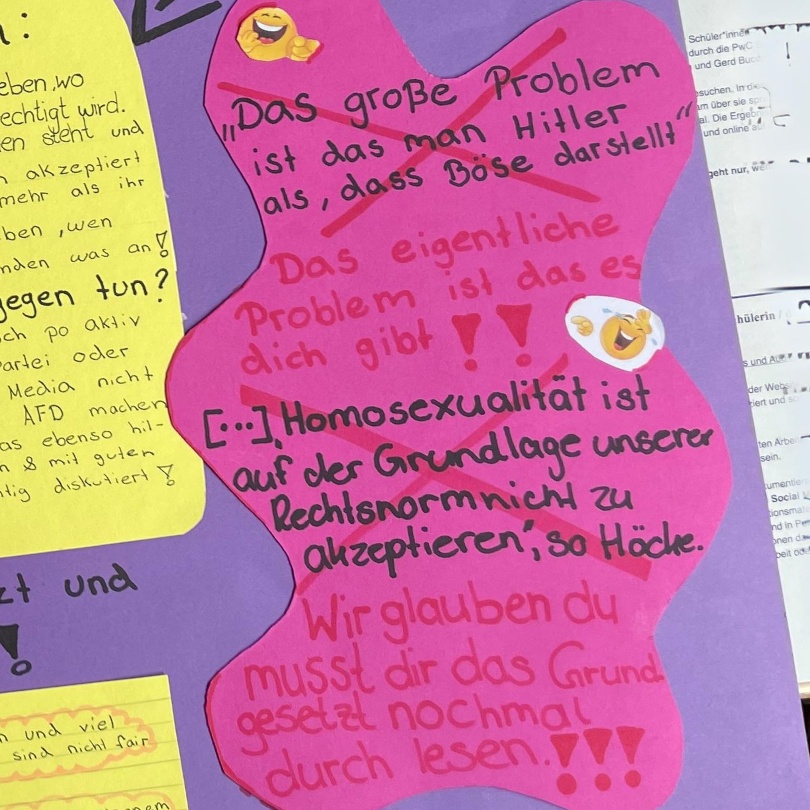 :
eben, wo
echtigt wird.
en steht und
akzeptiert
mehr als ihr
ben, wen
nden was an!
gegen tun?
ch po aktiv
artei oder
Media nicht
AFD machen
as ebenso hil-
n & mit guten
tig diskutiert!
zt und
!
n und viel
sind nicht fair
„Das große Problem
ist das man Hitler
als, dass Böse darstellt“
Das eigentliche
Problem ist das es
dich gibt !!
[...] „Homosexualität ist
auf der Grundlage unserer
Rechtsnorm nicht zu
akzeptieren“, so Höcke.
Wir glauben du
musst dir das Grund
gesetzt nochmal
durch lesen.!!!
Schüler*innen
durch die PwC
und Gerd Buc
suchen. In d
m über sie
al. Die Ergeb
und online
geht nur, we
hülerin /
s und
der Webs
iert und s
ten Arbe
sein.
umentie
Social
ionsma
nd in Pe
onen d
beit od